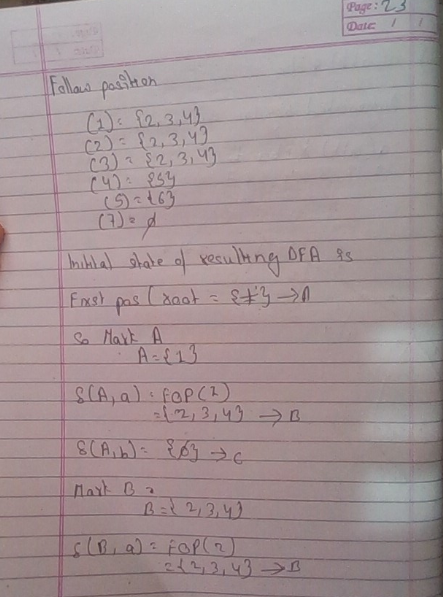 Page: 23
Date: / /
Follow position
(1) = {2, 3, 4}
(2) = {2, 3, 4}
(3) = {2, 3, 4}
(4) = {5}
(5) = {6}
(7) = ϕ
Initial state of resulting DFA is
First pos (root = {1} → A
So Mark A
A = {1}
δ(A, a) = FOP(2)
= {2, 3, 4} → B
δ(A, b) = {ϕ} → C
Mark B
B = {2, 3, 4}
δ(B, a) = FOP(2)
= {2, 3, 4} → B